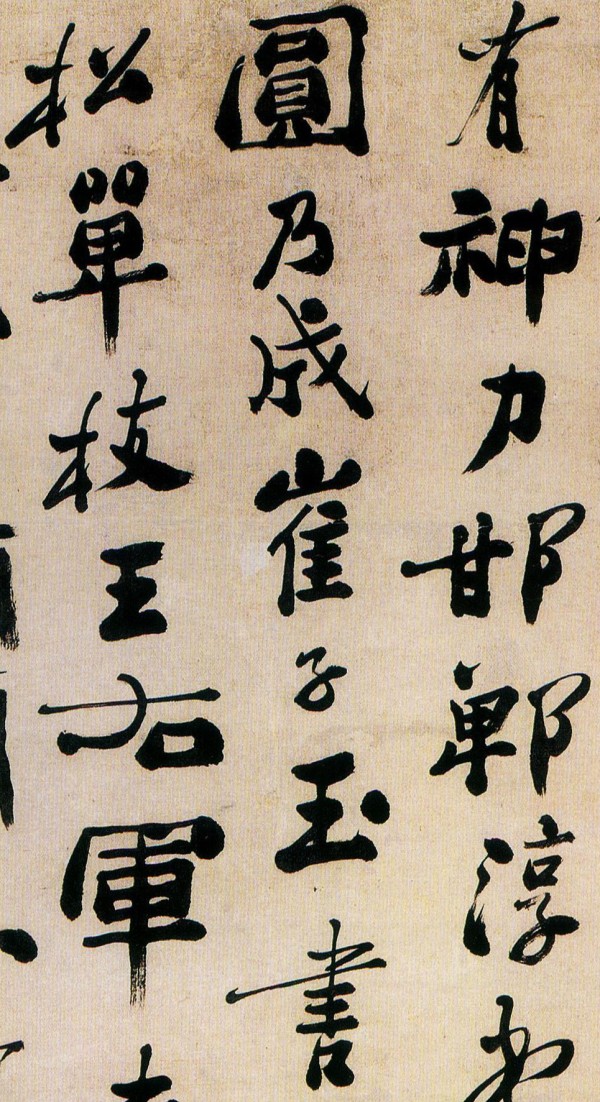 有神力邯鄲淳
圓乃成崔子玉書
松單枝王右軍